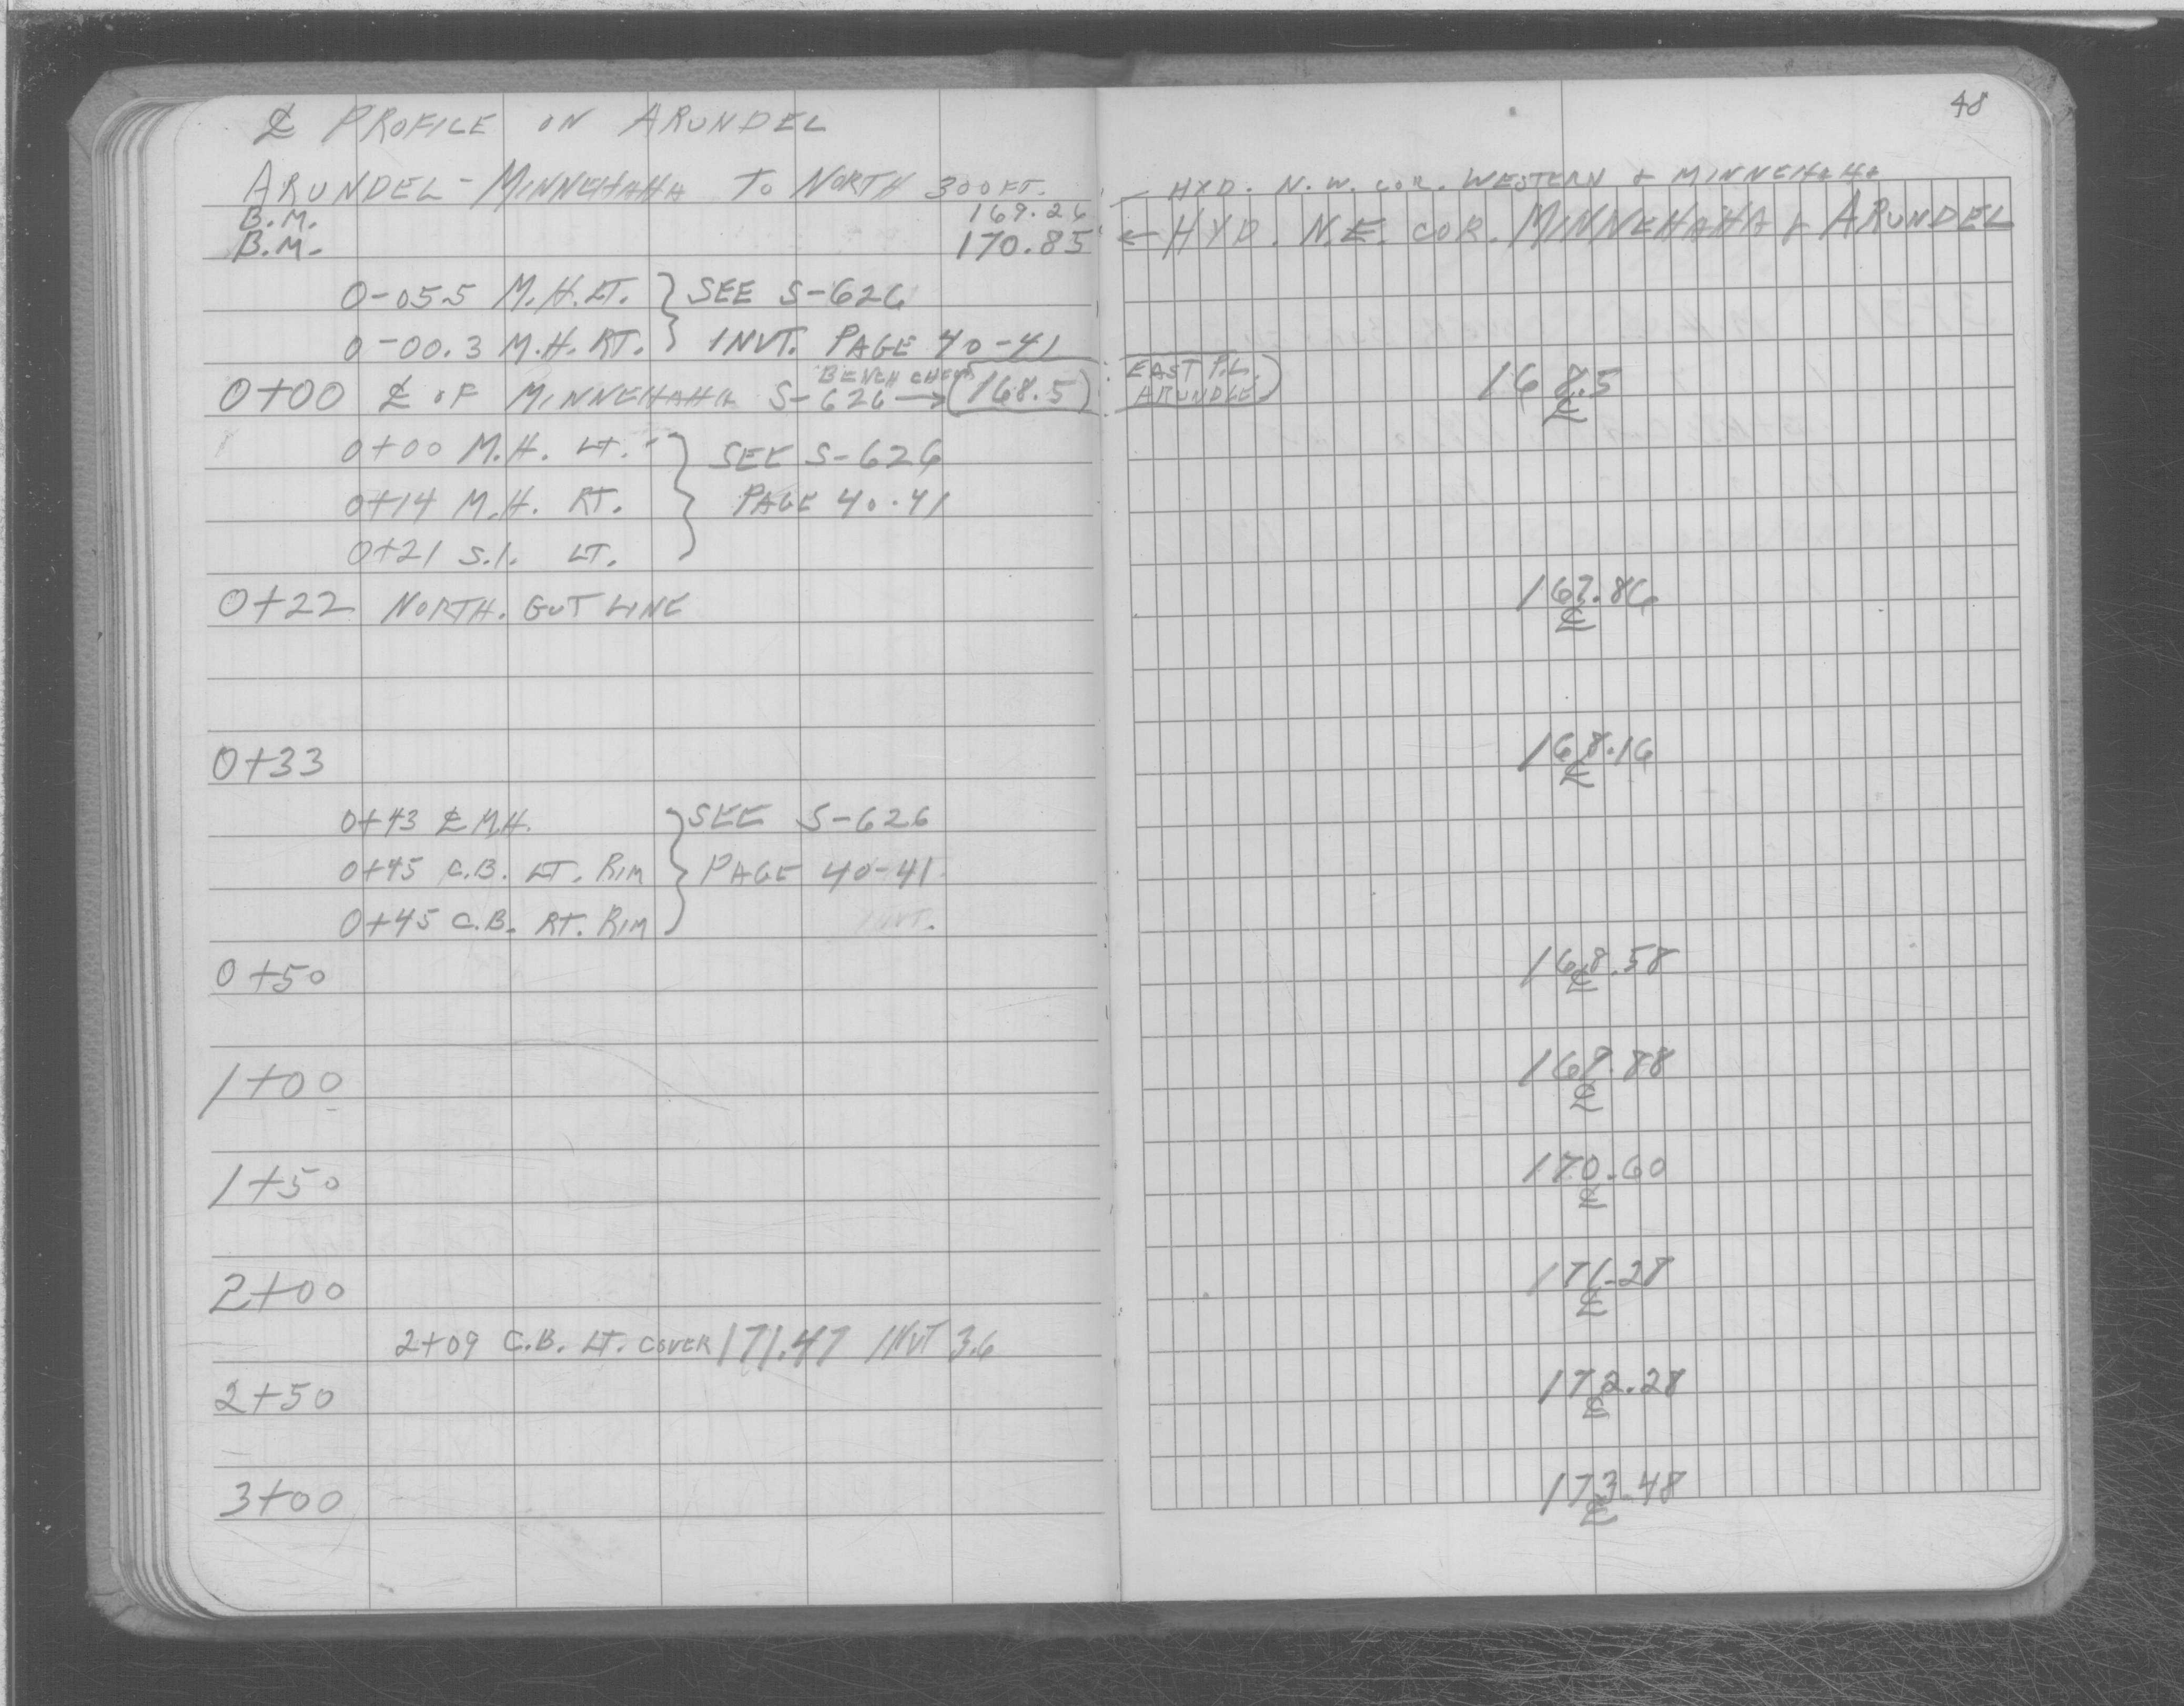 ℄ PROFILE ON ARUNDEL
ARUNDEL - MINNEHAHA TO NORTH 300 FT.
B.M. 169.26
B.M. 170.85
0-05.5 M.H. LT. } SEE S-626
0-00.3 M.H. RT. } INVT. PAGE 40-41
BENCH CHECK
0+00 ℄ OF MINNEHAHA S-626 → (168.5)
0+00 M.H. LT. } SEE S-626
0+14 M.H. RT. } PAGE 40-41
0+21 S.I. LT.
0+22 NORTH. GUT LINE
0+33
0+43 ℄ M.H. } SEE S-626
0+45 C.B. LT. RIM } PAGE 40-41
0+45 C.B. RT. RIM INVT.
0+50
1+00
1+50
2+00
2+09 C.B. LT. COVER 171.47 INVT 3.6
2+50
3+00
48
← HYD. N.W. COR. WESTERN & MINNEHAHA
← HYD. N.E. COR. MINNEHAHA & ARUNDEL
EAST P.L.
ARUNDLE
168.5
℄
167.86
℄
168.16
℄
168.58
℄
℄
170.60
℄
171.28
℄
172.28
℄
173.48
℄